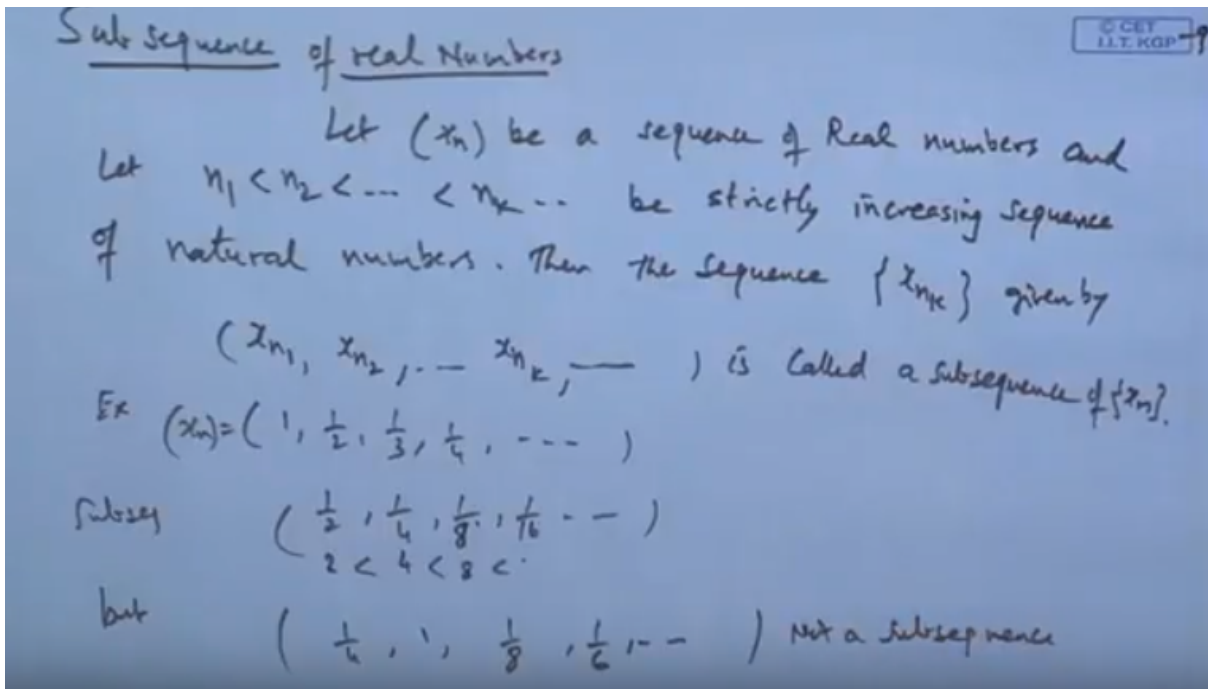 Sub sequence of real Numbers
© CET
I.I.T. KGP
Let (xn) be a sequence of Real numbers and
Let n1 < n2 < --- < nk -- be strictly increasing sequence
of natural numbers. Then the sequence {xnk} given by
(xn1, xn2, -- xnk, — ) is Called a subsequence of {xn}.
Ex (xn) = (1, 1/2, 1/3, 1/4, --- )
Subseq (1/2, 1/4, 1/8, 1/16 -- )
2 < 4 < 8 < ·
but (1/4, 1, 1/8, 1/6, -- ) Not a subsequence